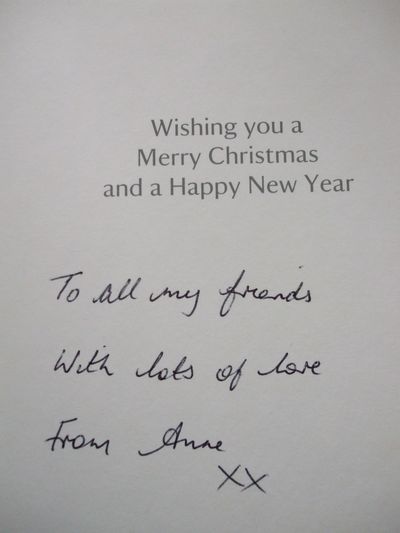 Wishing you a
Merry Christmas
and a Happy New Year
To all my friends
With lots of love
From Anne
XX